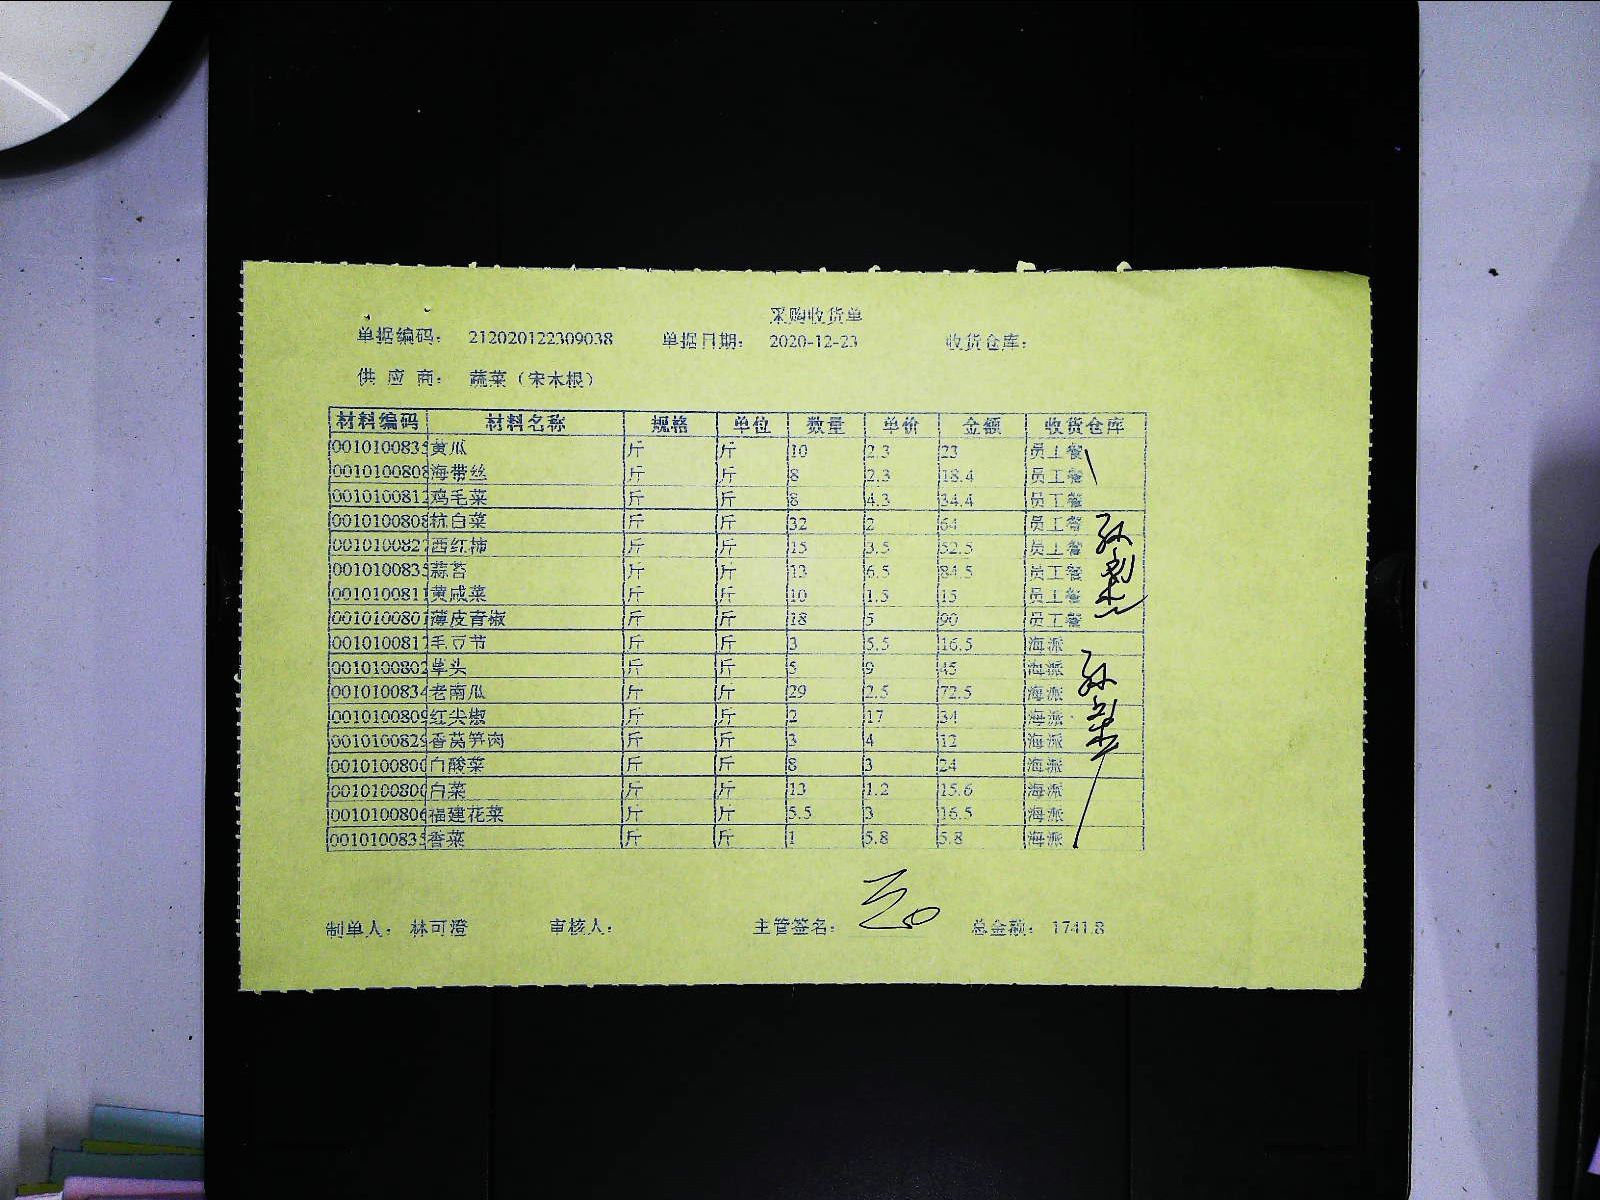 采购收货单
单据编码： 212020122309038 单据日期： 2020-12-23 收货仓库：
供 应 商： 蔬菜（宋木根）
材料编码 材料名称 规格 单位 数量 单价 金额 收货仓库
0010100835 黄瓜 斤 斤 10 2.3 23 员工餐
0010100808 海带丝 斤 斤 8 2.3 18.4 员工餐
0010100812 鸡毛菜 斤 斤 8 4.3 34.4 员工餐
0010100808 杭白菜 斤 斤 32 2 64 员工餐
0010100827 西红柿 斤 斤 15 3.5 52.5 员工餐
0010100835 蒜苔 斤 斤 13 6.5 84.5 员工餐
0010100811 黄咸菜 斤 斤 10 1.5 15 员工餐
0010100801 薄皮青椒 斤 斤 18 5 90 员工餐
0010100817 毛豆节 斤 斤 3 5.5 16.5 海派
0010100802 草头 斤 斤 5 9 45 海派
0010100834 老南瓜 斤 斤 29 2.5 72.5 海派
0010100809 红尖椒 斤 斤 2 17 34 海派
0010100829 香莴笋肉 斤 斤 3 4 12 海派
0010100800 白酸菜 斤 斤 8 3 24 海派
0010100800 白菜 斤 斤 13 1.2 15.6 海派
0010100806 福建花菜 斤 斤 5.5 3 16.5 海派
0010100835 香菜 斤 斤 1 5.8 5.8 海派
制单人： 林可澄 审核人： 主管签名： 总金额： 1741.8